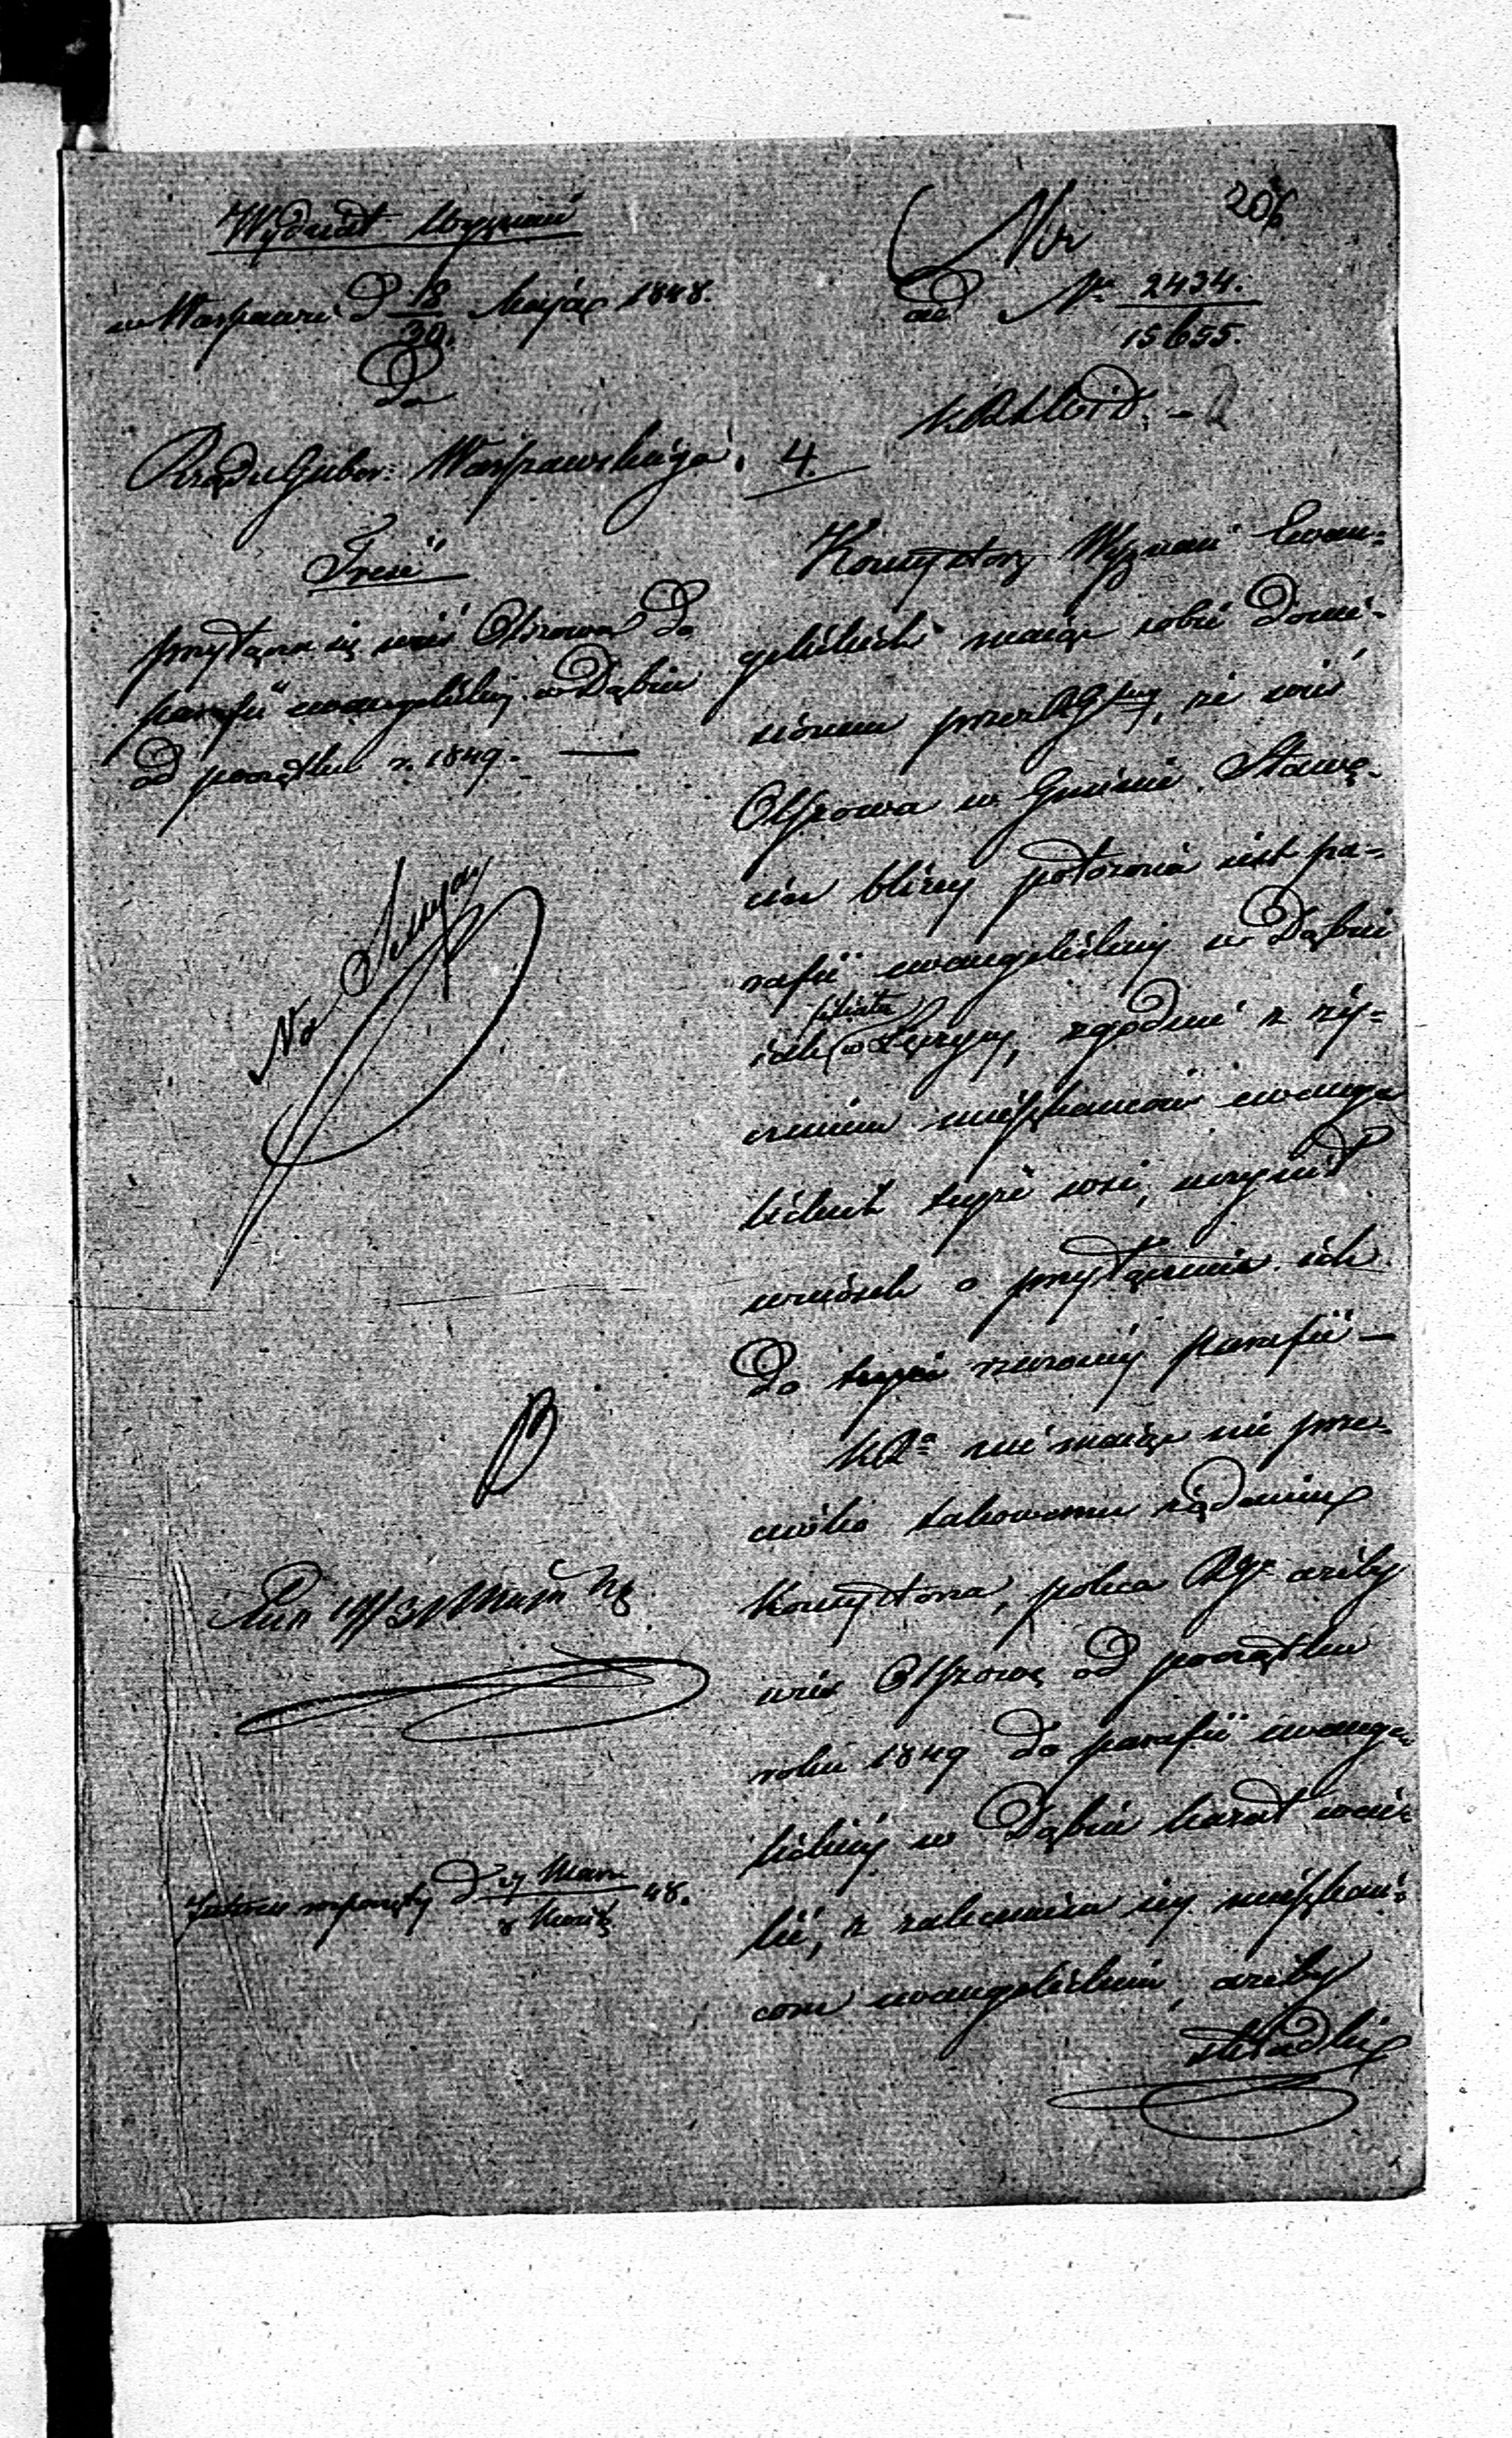 206
Wydział Wyznań
w Warszawie d 18/30 Maja 1848.
Do
Rządu Guber: Warszawskiego. 4.
Treść
przyłącza się wieś Olszowa do
parafii ewangelickiej w Dąbiu
od początku r. 1849. —
Nr
ad Nr 2434./15655.
Komsystorz Wyznań Ewan-
gelickich maiąc sobie donie-
sionem przez RGny, że wieś
Olszowa w Gminie Stawę-
cin bliżej położona iest pa-
rafii ewangelickiej w Dąbiu
iak filiału w Łęczycy, zgodnie z ży-
czeniem mieszkańców ewange
lickich tejże wsi, uczynił
wniosek o przyłączenie ich
do tejże rzeczonej parafii —
KRa nie maiąc nic prze-
ciwko takowemu żądaniu
Konsystorza, poleca RGu ażeby
wieś Olszowę od początku
roku 1849 do parafii ewange-
lickiej w Dąbiu kazał wcie-
lić, z zaleceniem iej mieszkań-
com ewangelickim, ażeby
składki
19/31 Maja
48.